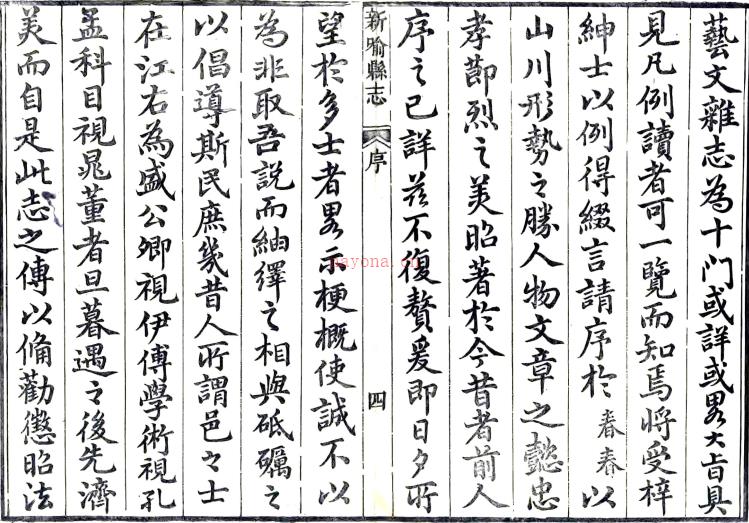 藝文雜志為十門或詳或畧大旨具
見凡例讀者可一覽而知焉將受梓
紳士以例得綴言請序於春春以
山川形勢之勝人物文章之懿忠
孝節烈之美昭著於今昔者前人
序之已詳茲不復贅爰即日夕所
新喻縣志 序 四
望於多士者畧示梗概使誠不以
為非取吾說而紬繹之相與砥礪之
以倡導斯民庶幾昔人所謂邑之士
在江右為盛公卿視伊傅學術視孔
孟科目視晁董者旦暮遇之後先濟
美而自是此志之傳以備勸懲昭法
nayona.cn